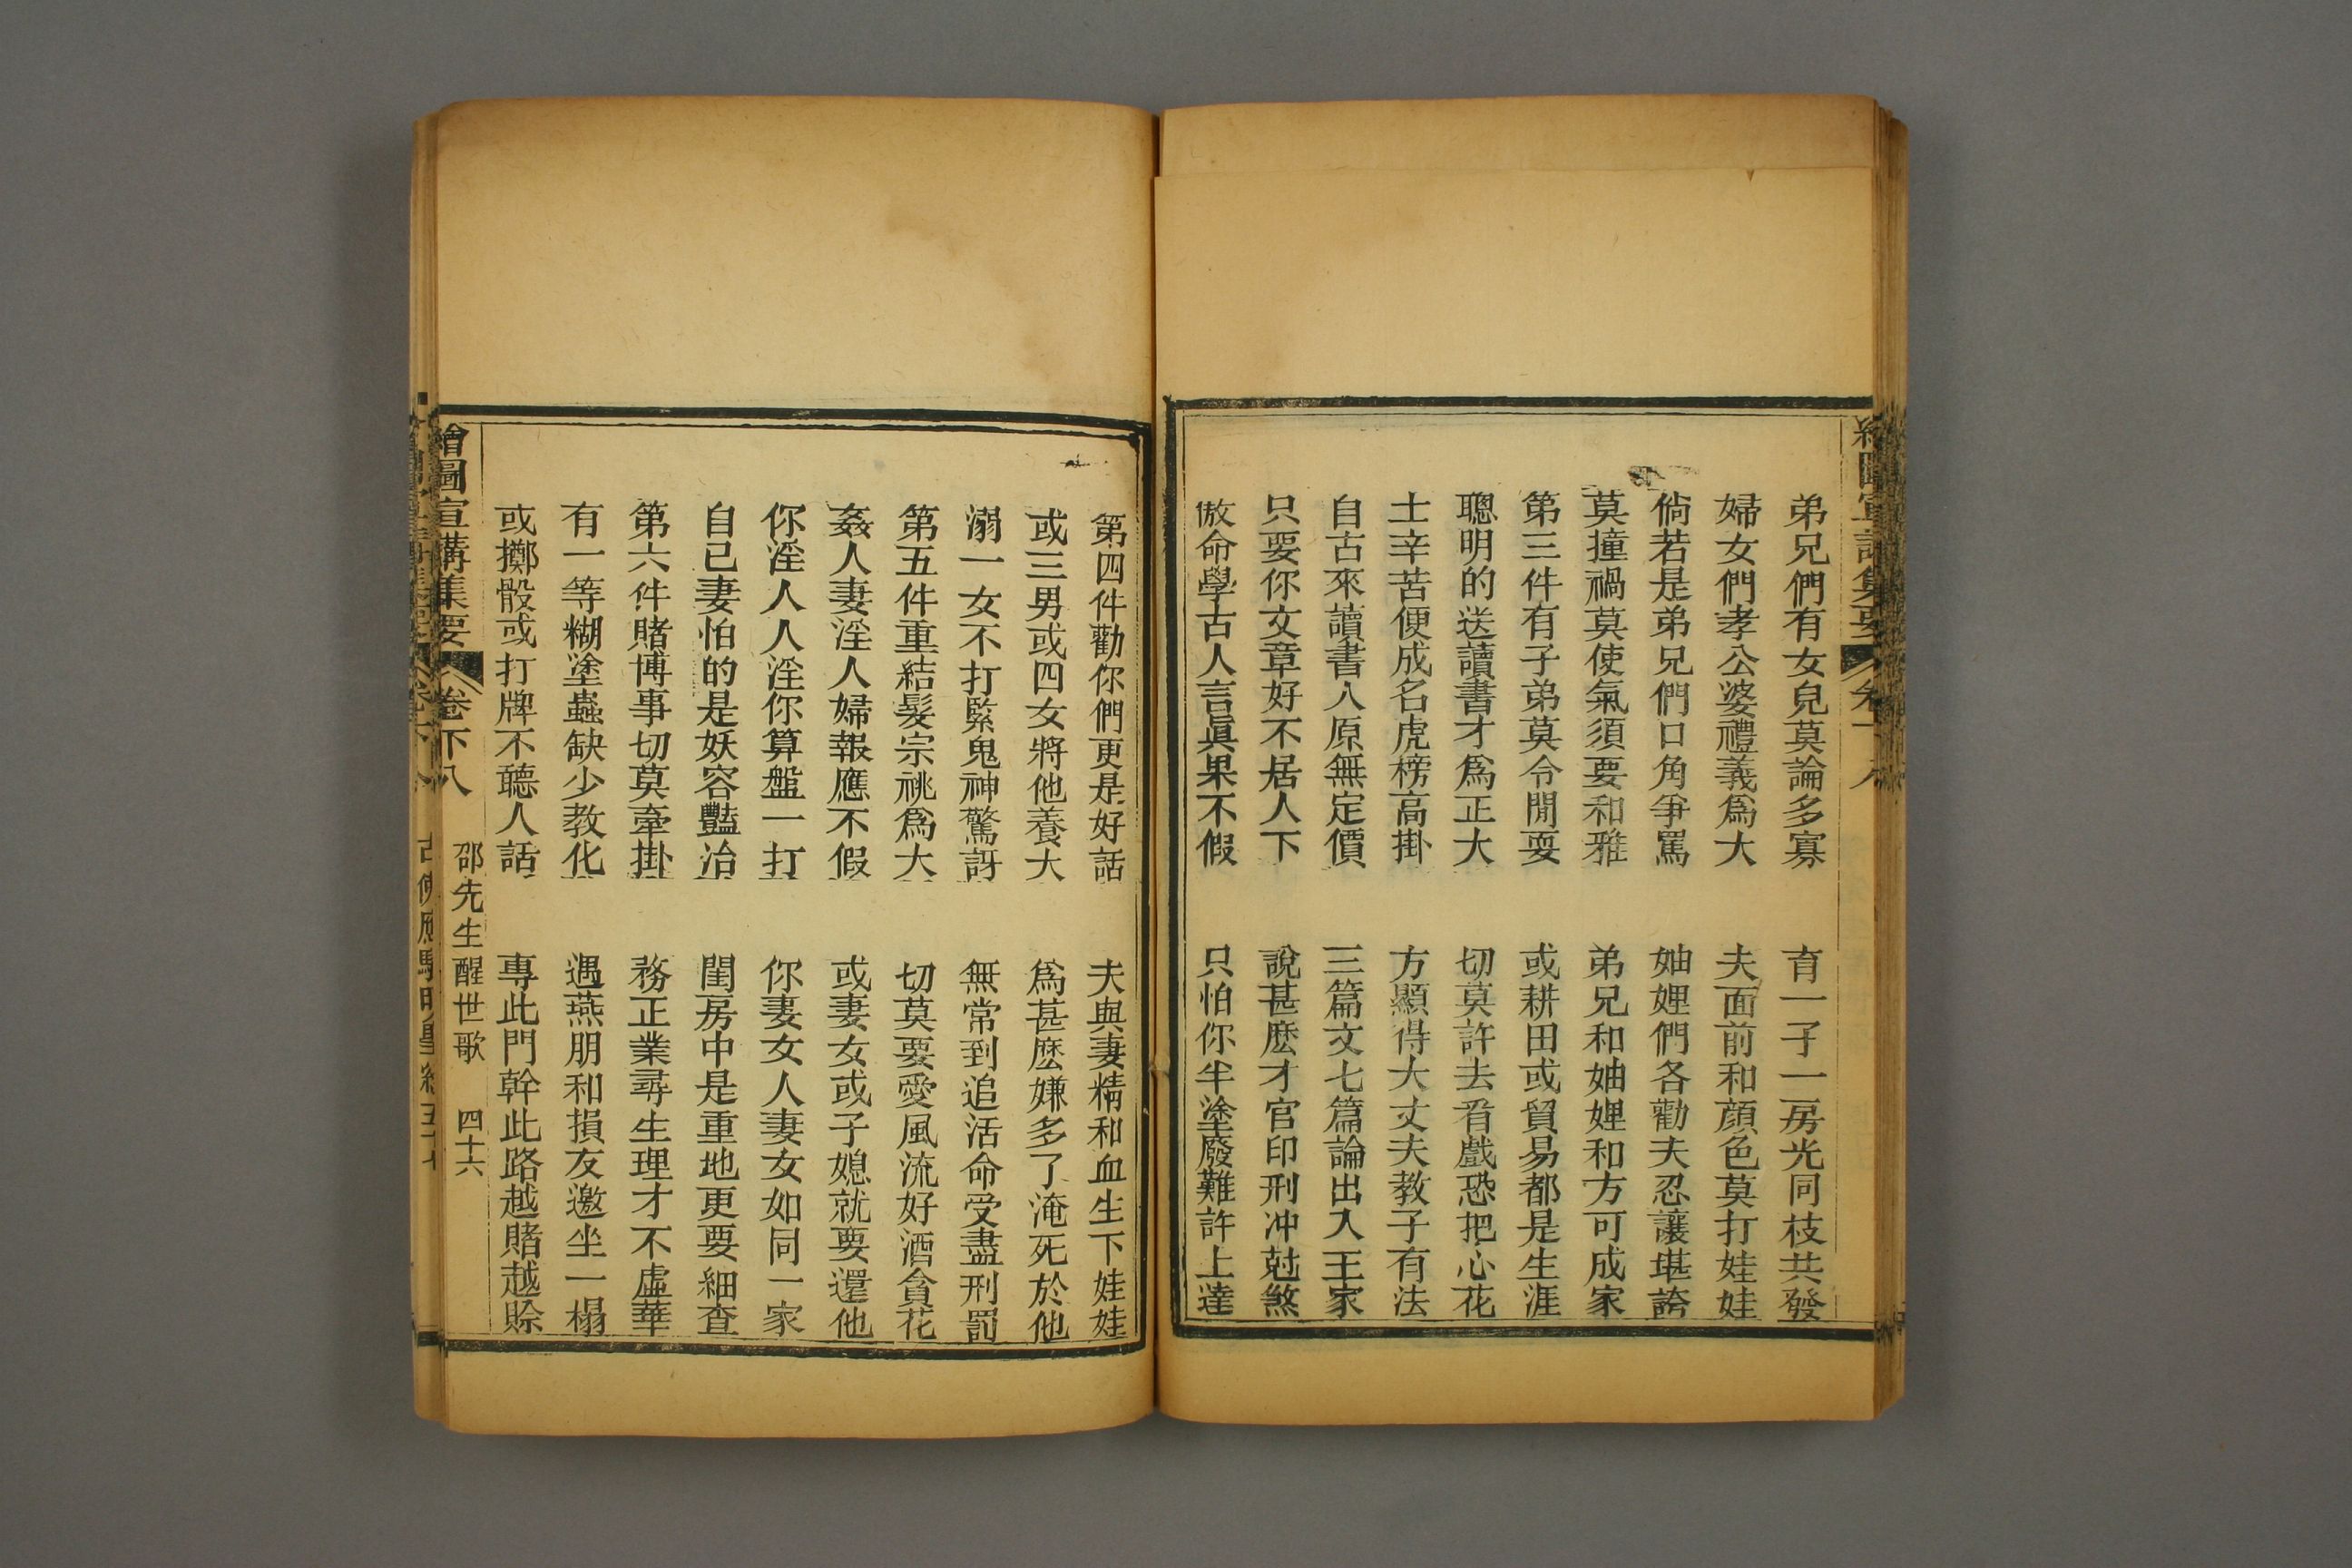 弟兄們有女兒莫論多寡　育一子一房光同枝共發
婦女們孝公婆禮義爲大　夫面前和顔色莫打娃娃
倘若是弟兄們口角爭罵　妯娌們各勸夫忍讓堪誇
莫撞禍莫使氣須要和雅　弟兄和妯娌和方可成家
第三件有子弟莫令閒耍　或耕田或貿易都是生涯
聰明的送讀書才爲正大　切莫許去看戲恐把心花
士辛苦便成名虎榜高掛　方顯得大丈夫教子有法
自古來讀書人原無定價　三篇文七篇論出入王家
只要你文章好不居人下　說甚麽才官印刑冲尅煞
倣命學古人言眞果不假　只怕你半塗廢難許上達
第四件勸你們更是好話　夫與妻精和血生下娃娃
或三男或四女將他養大　爲甚麽嫌多了淹死於他
溺一女不打緊鬼神驚訝　無常到追活命受盡刑罰
第五件重結髮宗祧爲大　切莫要愛風流好酒貪花
姦人妻淫人婦報應不假　或妻女或子媳就要還他
你淫人人淫你算盤一打　你妻女人妻女如同一家
自己妻怕的是妖容豔冶　閨房中是重地更要細查
第六件賭博事切莫牽掛　務正業尋生理才不虛華
有一等糊塗蟲缺少教化　遇燕朋和損友邀坐一榻
或擲骰或打牌不聽人話　專此門幹此路越賭越賒
繪圖宣講集要　卷下八　邵先生醒世歌　四十六